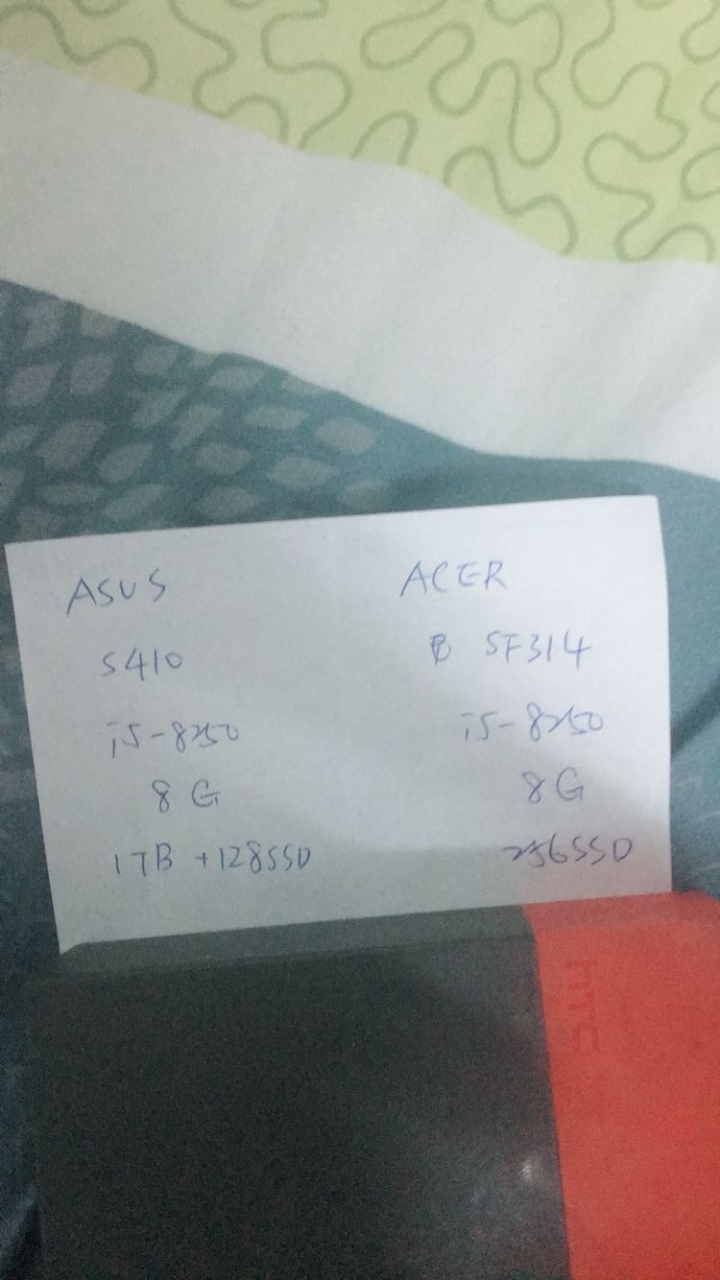 ASUS
S410
i5-8250
8G
1TB +128SSD
ACER
SF314
i5-8250
8G
256SSD
HTC